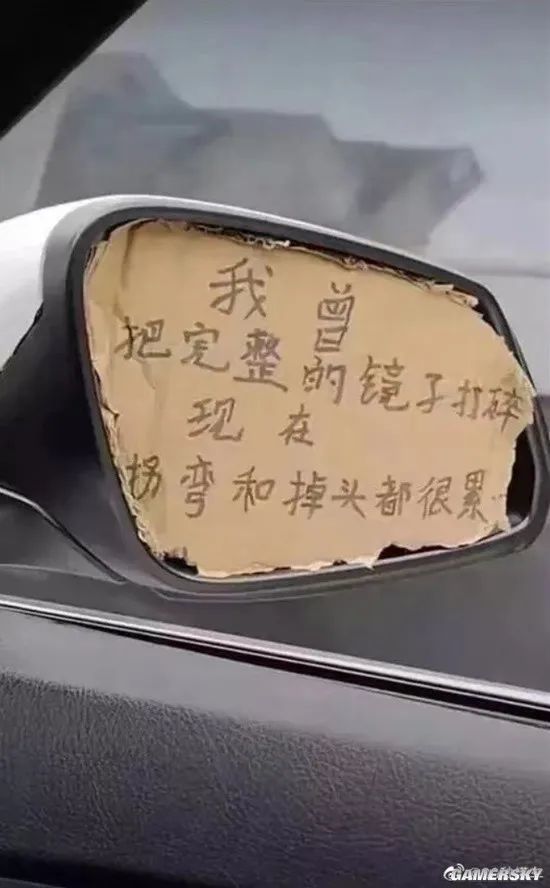 我曾
把完整的镜子打碎
现在
拐弯和掉头都很累…
GAMERSKY